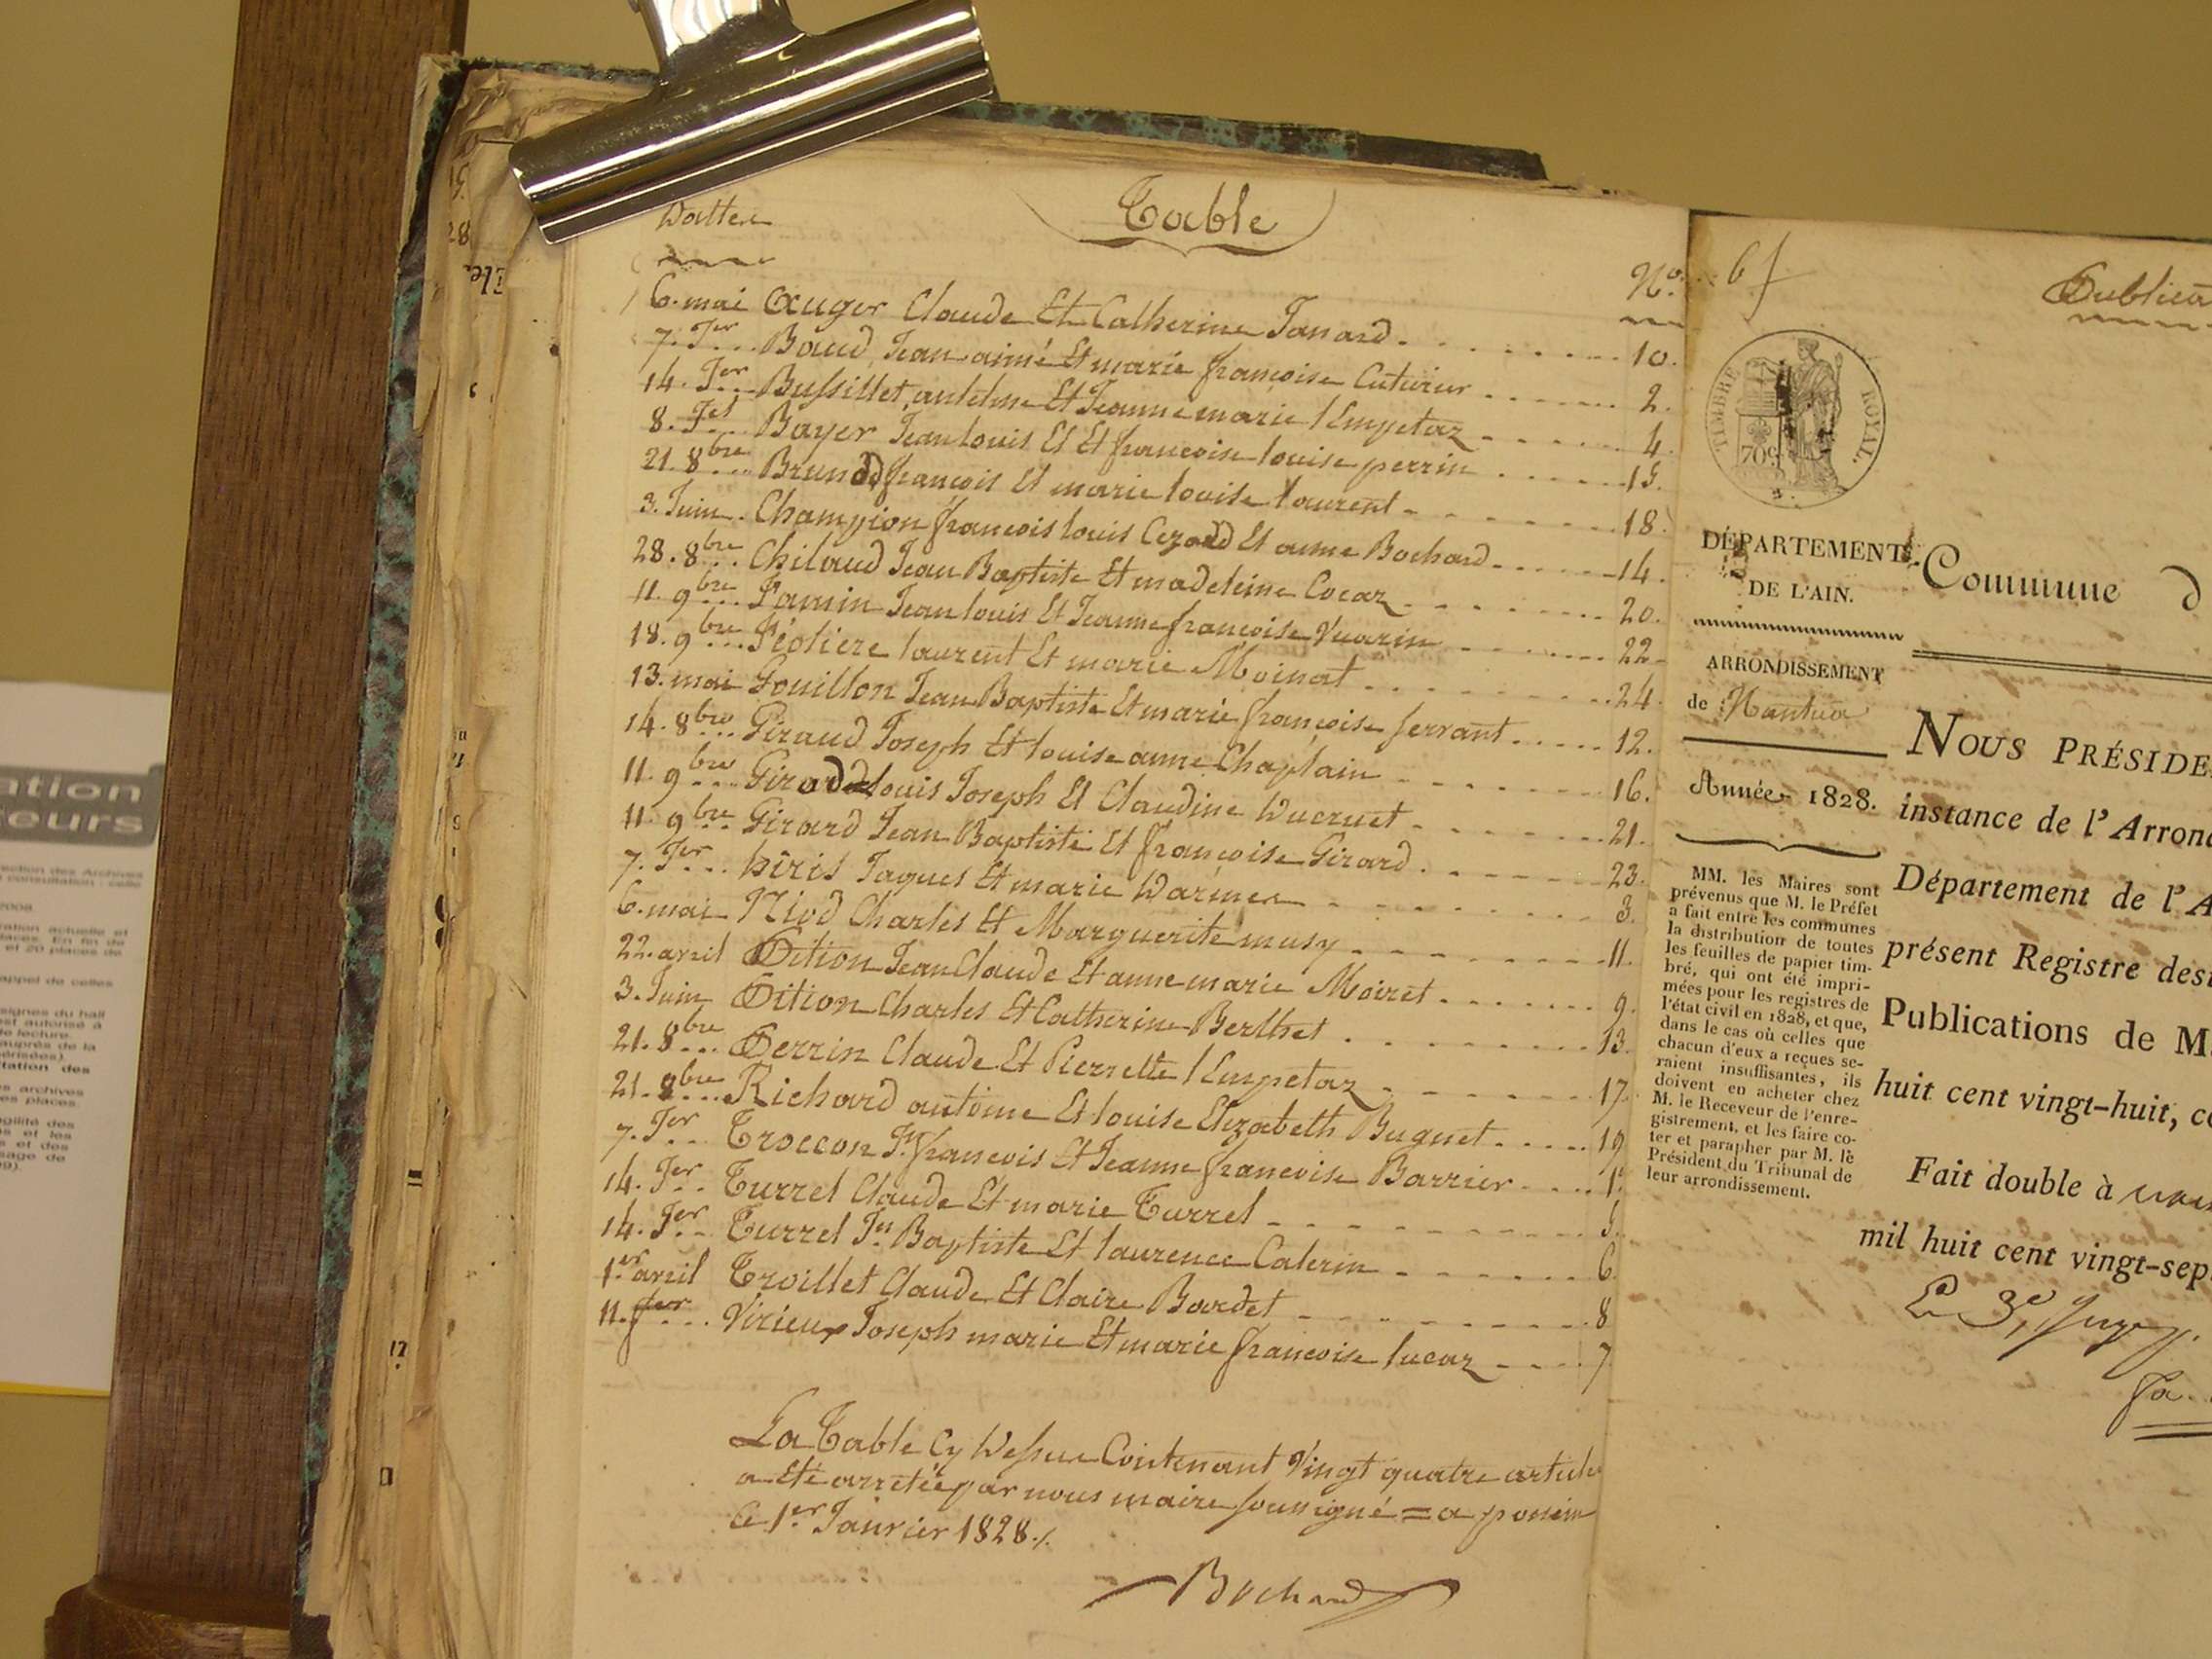 Table
Dattes
No.
6. mai Auger Claude Et Catherine Janard 10.
7. Jer Baud Jean aimé Et marie françoise Cuturier 2.
14. Jer Bussillet antelme Et Jeanne marie lEmpetaz 4
8. Bayer Jean louis Et Et francoise louise perrin 15.
21. 8bre Brund françois Et marie louise laurent 18.
3. Juin Champion francois louis Cezard Et anne Bochard 14.
28. 8bre Chilaud Jean Baptiste Et madeleine Cocaz 20.
11. 9bre Famin Jean louis Et Jeanne francoise Vuarin 22
18. 9bre Féoliere laurent Et marie Moinat 24
13. mai Gouillon Jean Baptiste Et marie françoise ferrant 12.
14. 8bre Giraud Joseph Et louise anne Chaplain 16.
11. 9bre Girard louis Joseph Et Claudine Ducruet 21.
11. 9bre Girard Jean Baptiste Et françoise Girard 23.
7. Jer hiris Jaques Et marie Darmes 3.
6. mai Niod Charles Et Marguerite musy 11.
22. avril Pition Jean Claude Et anne marie Moiret 9.
3. Juin Pition Charles Et Catherine Berthet 13.
21. 8bre Perrin Claude Et Pierrette lEmpetaz 17.
21. 8bre Richard antoine Et louise Elizabeth Buguet 19
7. Jer Troccon Jn francois Et Jeanne francoise Barrier 1.
14. Jer Turrel Claude Et marie Turrel 5.
14. Jer Turrel Jn Baptiste Et laurence Caterin 6
1er avril Troillet Claude Et Claire Bardet 8
11. fer Virieux Joseph marie Et marie francoise lucaz 7
La Table Cy Dessus Contenant Vingt quatre article
a Eté arretée par nous maire soussigné = a poncin
Ce 1er Janvier 1828 ./.
Bochard
TIMBRE ROYAL.
70c
DÉPARTEMENT
DE L'AIN.
ARRONDISSEMENT
de Nantua
Année 1828.
MM. les Maires sont
prévenus que M. le Préfet
a fait entre les communes
la distribution de toutes
les feuilles de papier tim-
bré, qui ont été impri-
mées pour les registres de
l'état civil en 1828, et que,
dans le cas où celles que
chacun d'eux a reçues se-
raient insuffisantes, ils
doivent en acheter chez
M. le Receveur de l'enre-
gistrement, et les faire co-
ter et parapher par M. le
Président du Tribunal de
leur arrondissement.
Publica
Commune d
NOUS PRÉSIDE
instance de l'Arron
Département de l'A
présent Registre des
Publications de M
huit cent vingt-huit, c
Fait double à
mil huit cent vingt-sep
Le 3e Juge
ation
eurs